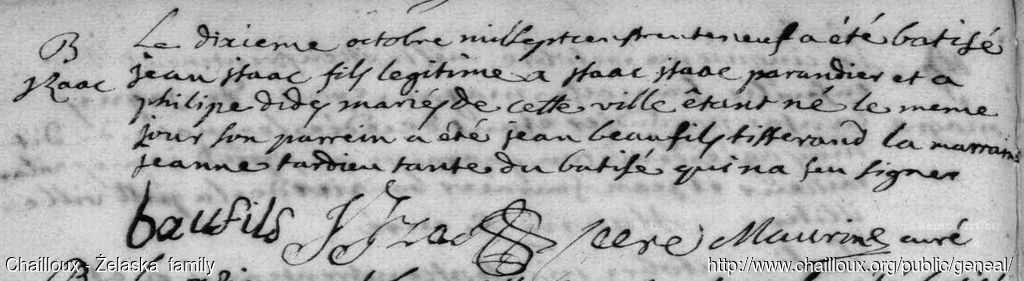 B
Izaac
Le dixieme octobre mil sept cens trente neuf a été batisé
jean jsaac fils legitime a jsaac jsaac parandier et a
philipe dides mariés de cette ville êtant né le meme
jour son parrein a été jean beaufils tisserand la marraine
jeanne tardieu tante du batisé qui na seu signer
baufils J Jzac pere Maurin curé
Chailloux - Żelaska family
http://www.chailloux.org/public/geneal/